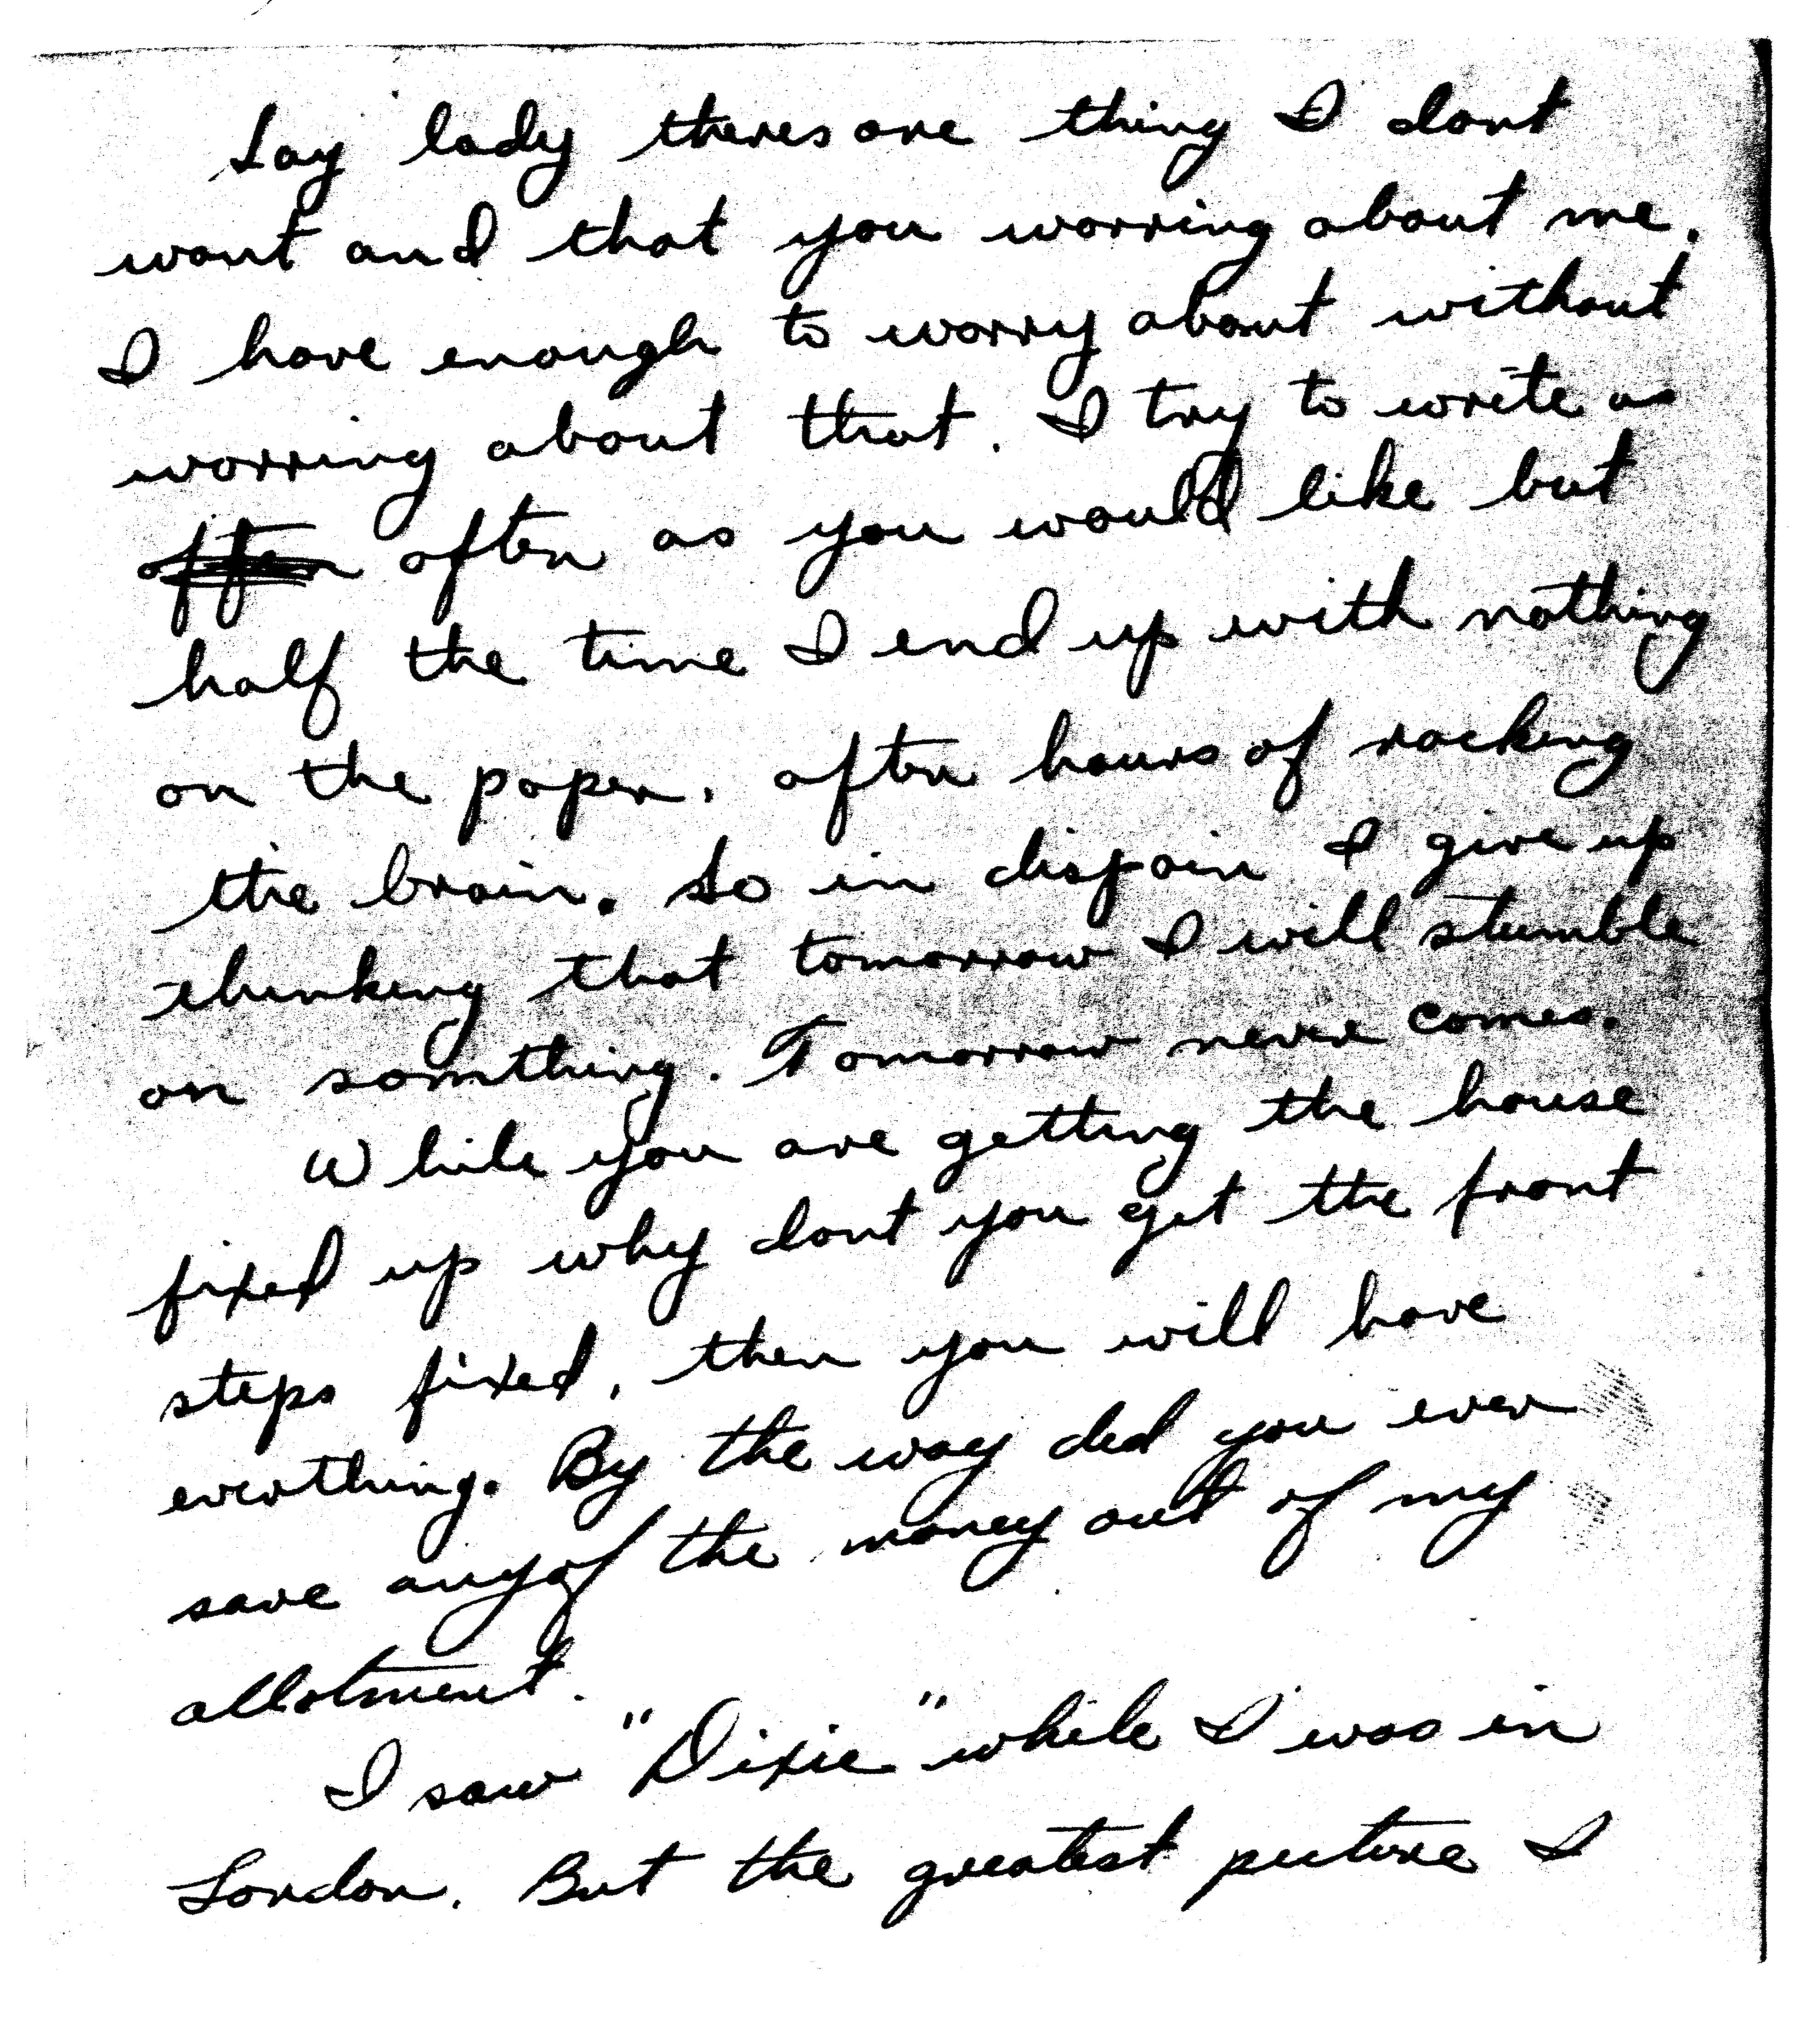 Say lady theres one thing I dont
want and that you worring about me.
I have enough to worry about without
worring about that. I try to write as
often as you would like but
half the time I end up with nothing
on the paper. after hours of racking
the brain. So in dispair I give up
thinking that tomorrow I will stumble
on somthing. Tomorrow never comes.
While you are getting the house
fixed up why dont you get the front
steps fixed, then you will have
everthing. By the way did you ever
save any of the money out of my
allotment.
I saw "Dixie" while I was in
London. But the greatest picture I